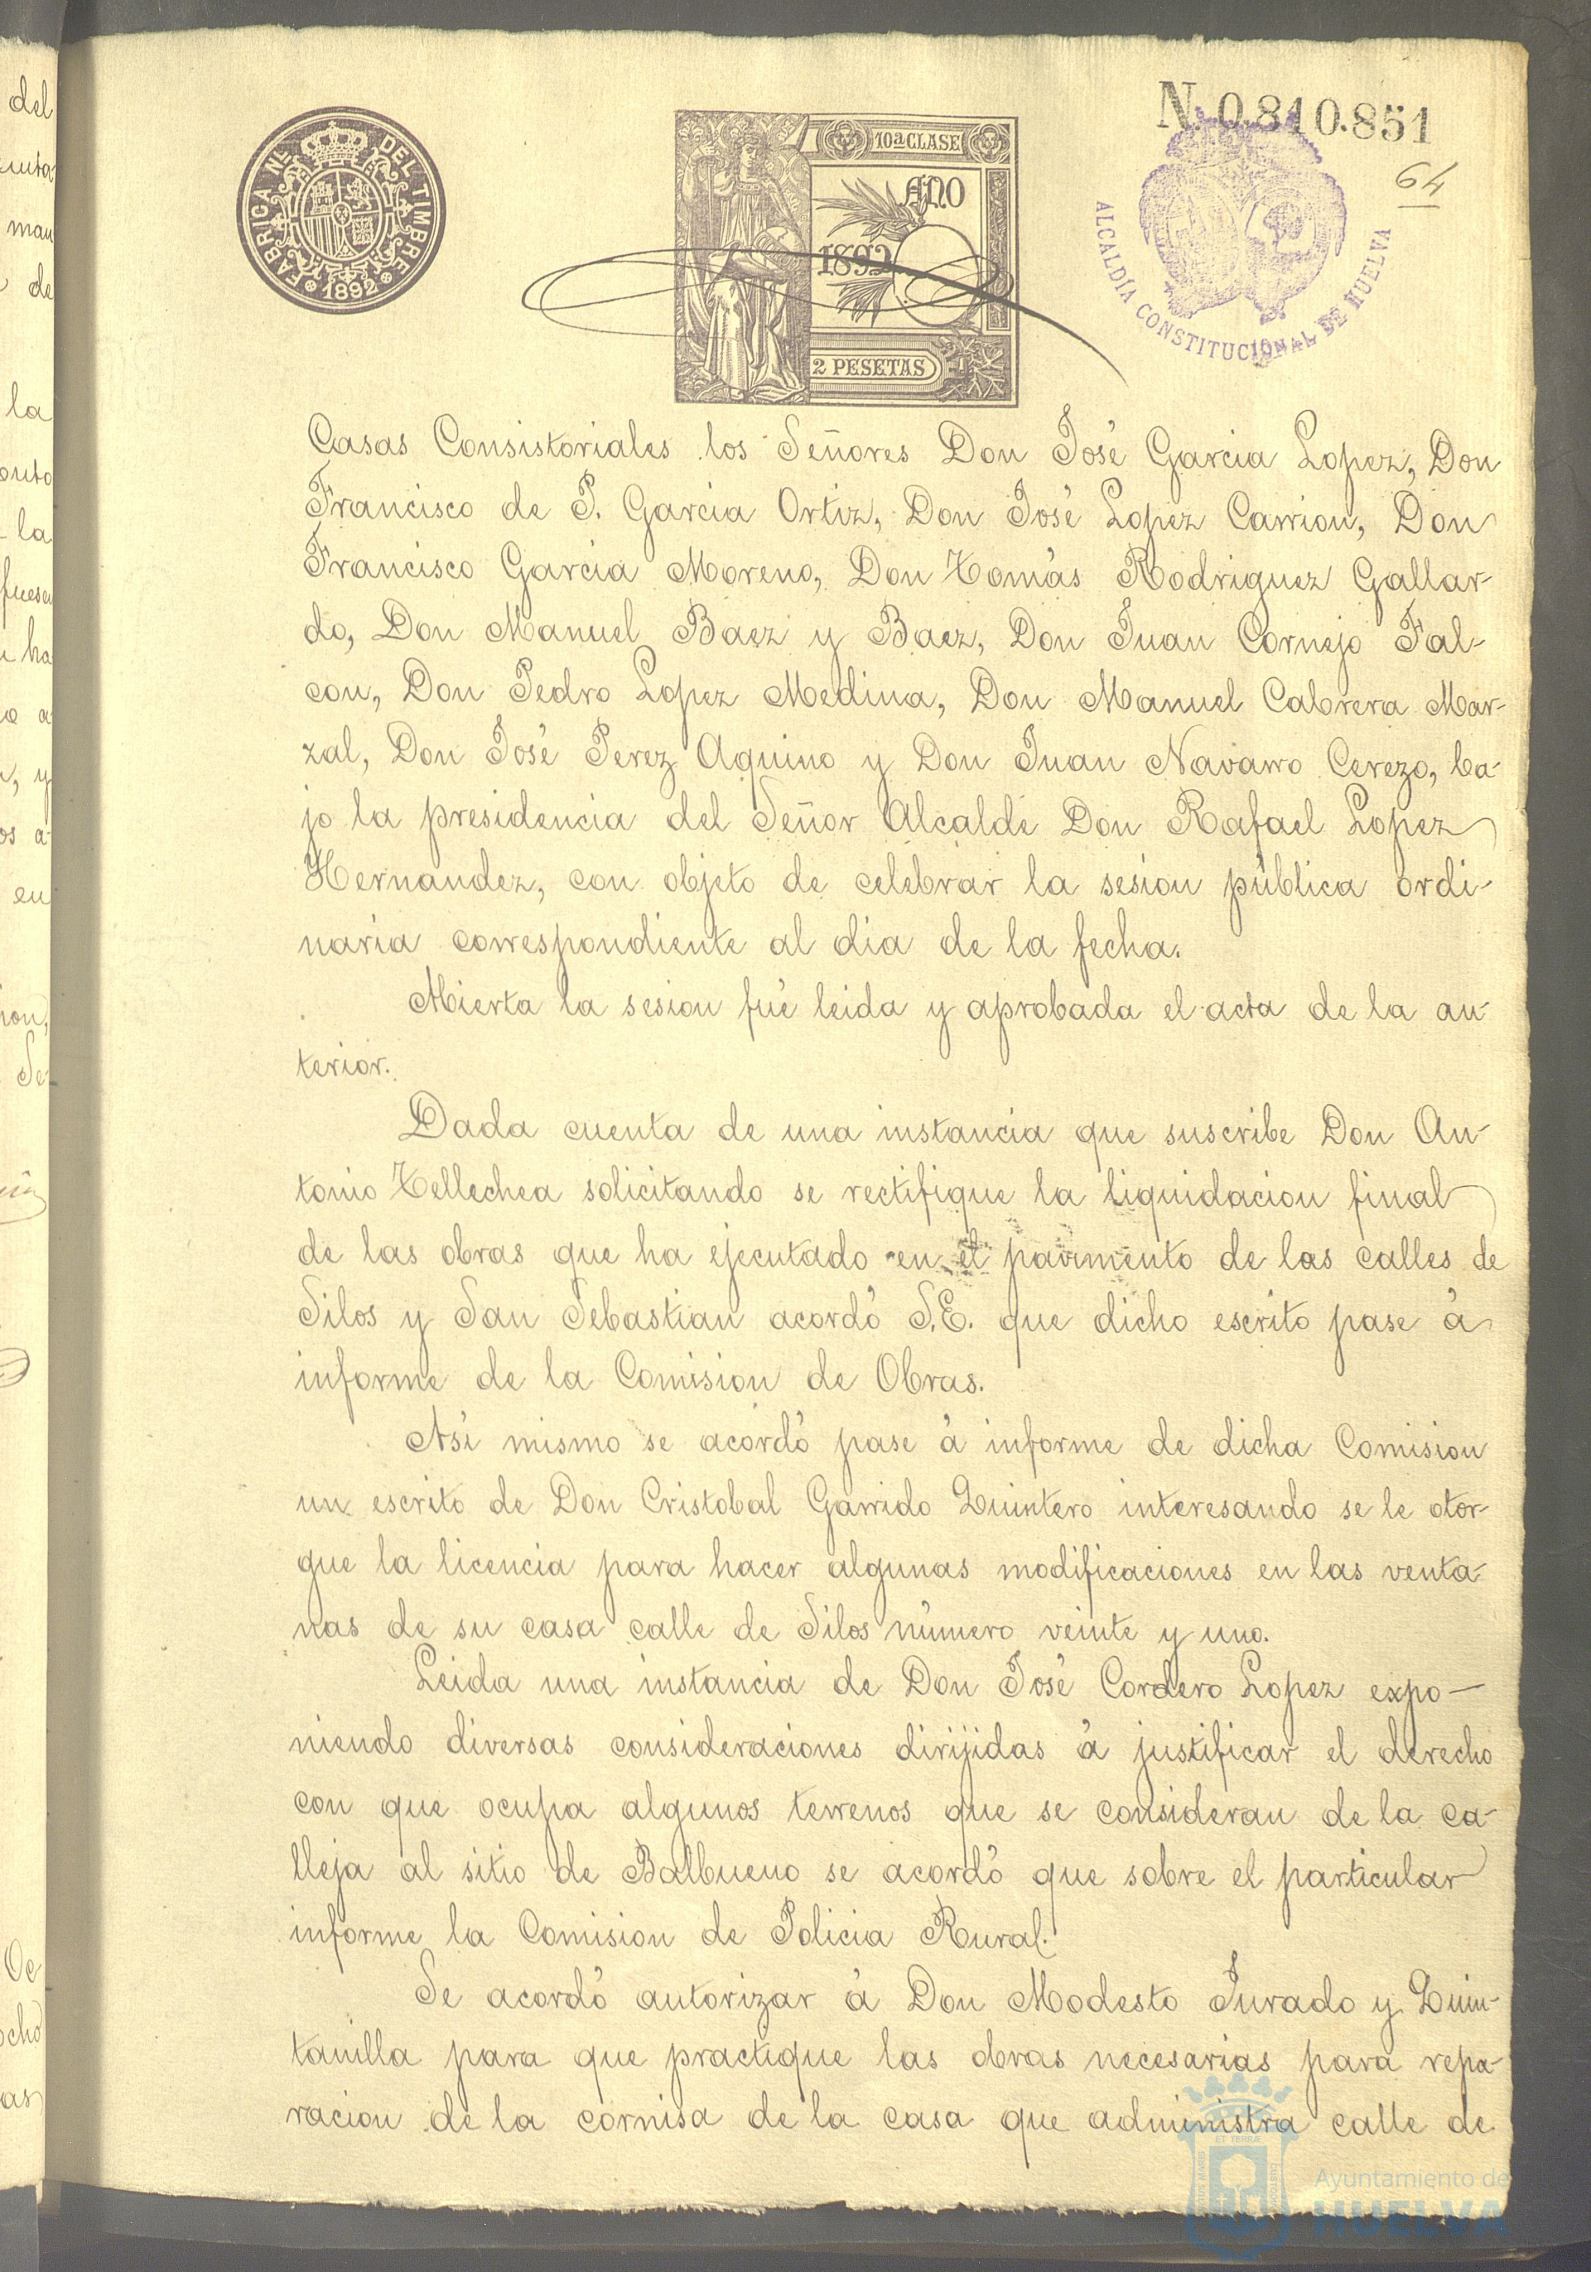 FABRICA Nˡ DEL TIMBRE
1892
10ª CLASE
AÑO
1892
2 PESETAS
N. 0.810.851
64
ALCALDÍA CONSTITUCIONAL DE HUELVA
Casas Consistoriales los Señores Don José Garcia Lopez, Don
Francisco de P. Garcia Ortiz, Don José Lopez Carrion, Don
Francisco Garcia Moreno, Don Tomás Rodriguez Gallar-
do, Don Manuel Baez y Baez, Don Juan Cornejo Fal-
con, Don Pedro Lopez Medina, Don Manuel Cabrera Mar-
zal, Don José Perez Aquino y Don Juan Navarro Cerezo, ba-
jo la presidencia del Señor Alcalde Don Rafael Lopez
Hernandez, con objeto de celebrar la sesion pública ordi-
naria correspondiente al dia de la fecha.
Abierta la sesion fué leida y aprobada el acta de la an-
terior.
Dada cuenta de una instancia que suscribe Don An-
tonio Tellechea solicitando se rectifique la liquidacion final
de las obras que ha ejecutado en el pavimento de las calles de
Silos y San Sebastian acordó S.E. que dicho escrito pase á
informe de la Comision de Obras.
Asi mismo se acordó pase á informe de dicha Comision
un escrito de Don Cristobal Garrido Quintero interesando se le otor-
gue la licencia para hacer algunas modificaciones en las venta-
nas de su casa calle de Silos número veinte y uno.
Leida una instancia de Don José Cordero Lopez expo-
niendo diversas consideraciones dirijidas á justificar el derecho
con que ocupa algunos terrenos que se consideran de la ca-
lleja al sitio de Balbueno se acordó que sobre el particular
informe la Comision de Policia Rural.
Se acordó autorizar á Don Modesto Jurado y Quin-
tanilla para que practique las obras necesarias para repa-
racion de la cornisa de la casa que administra calle de
Ayuntamiento de
HUELVA